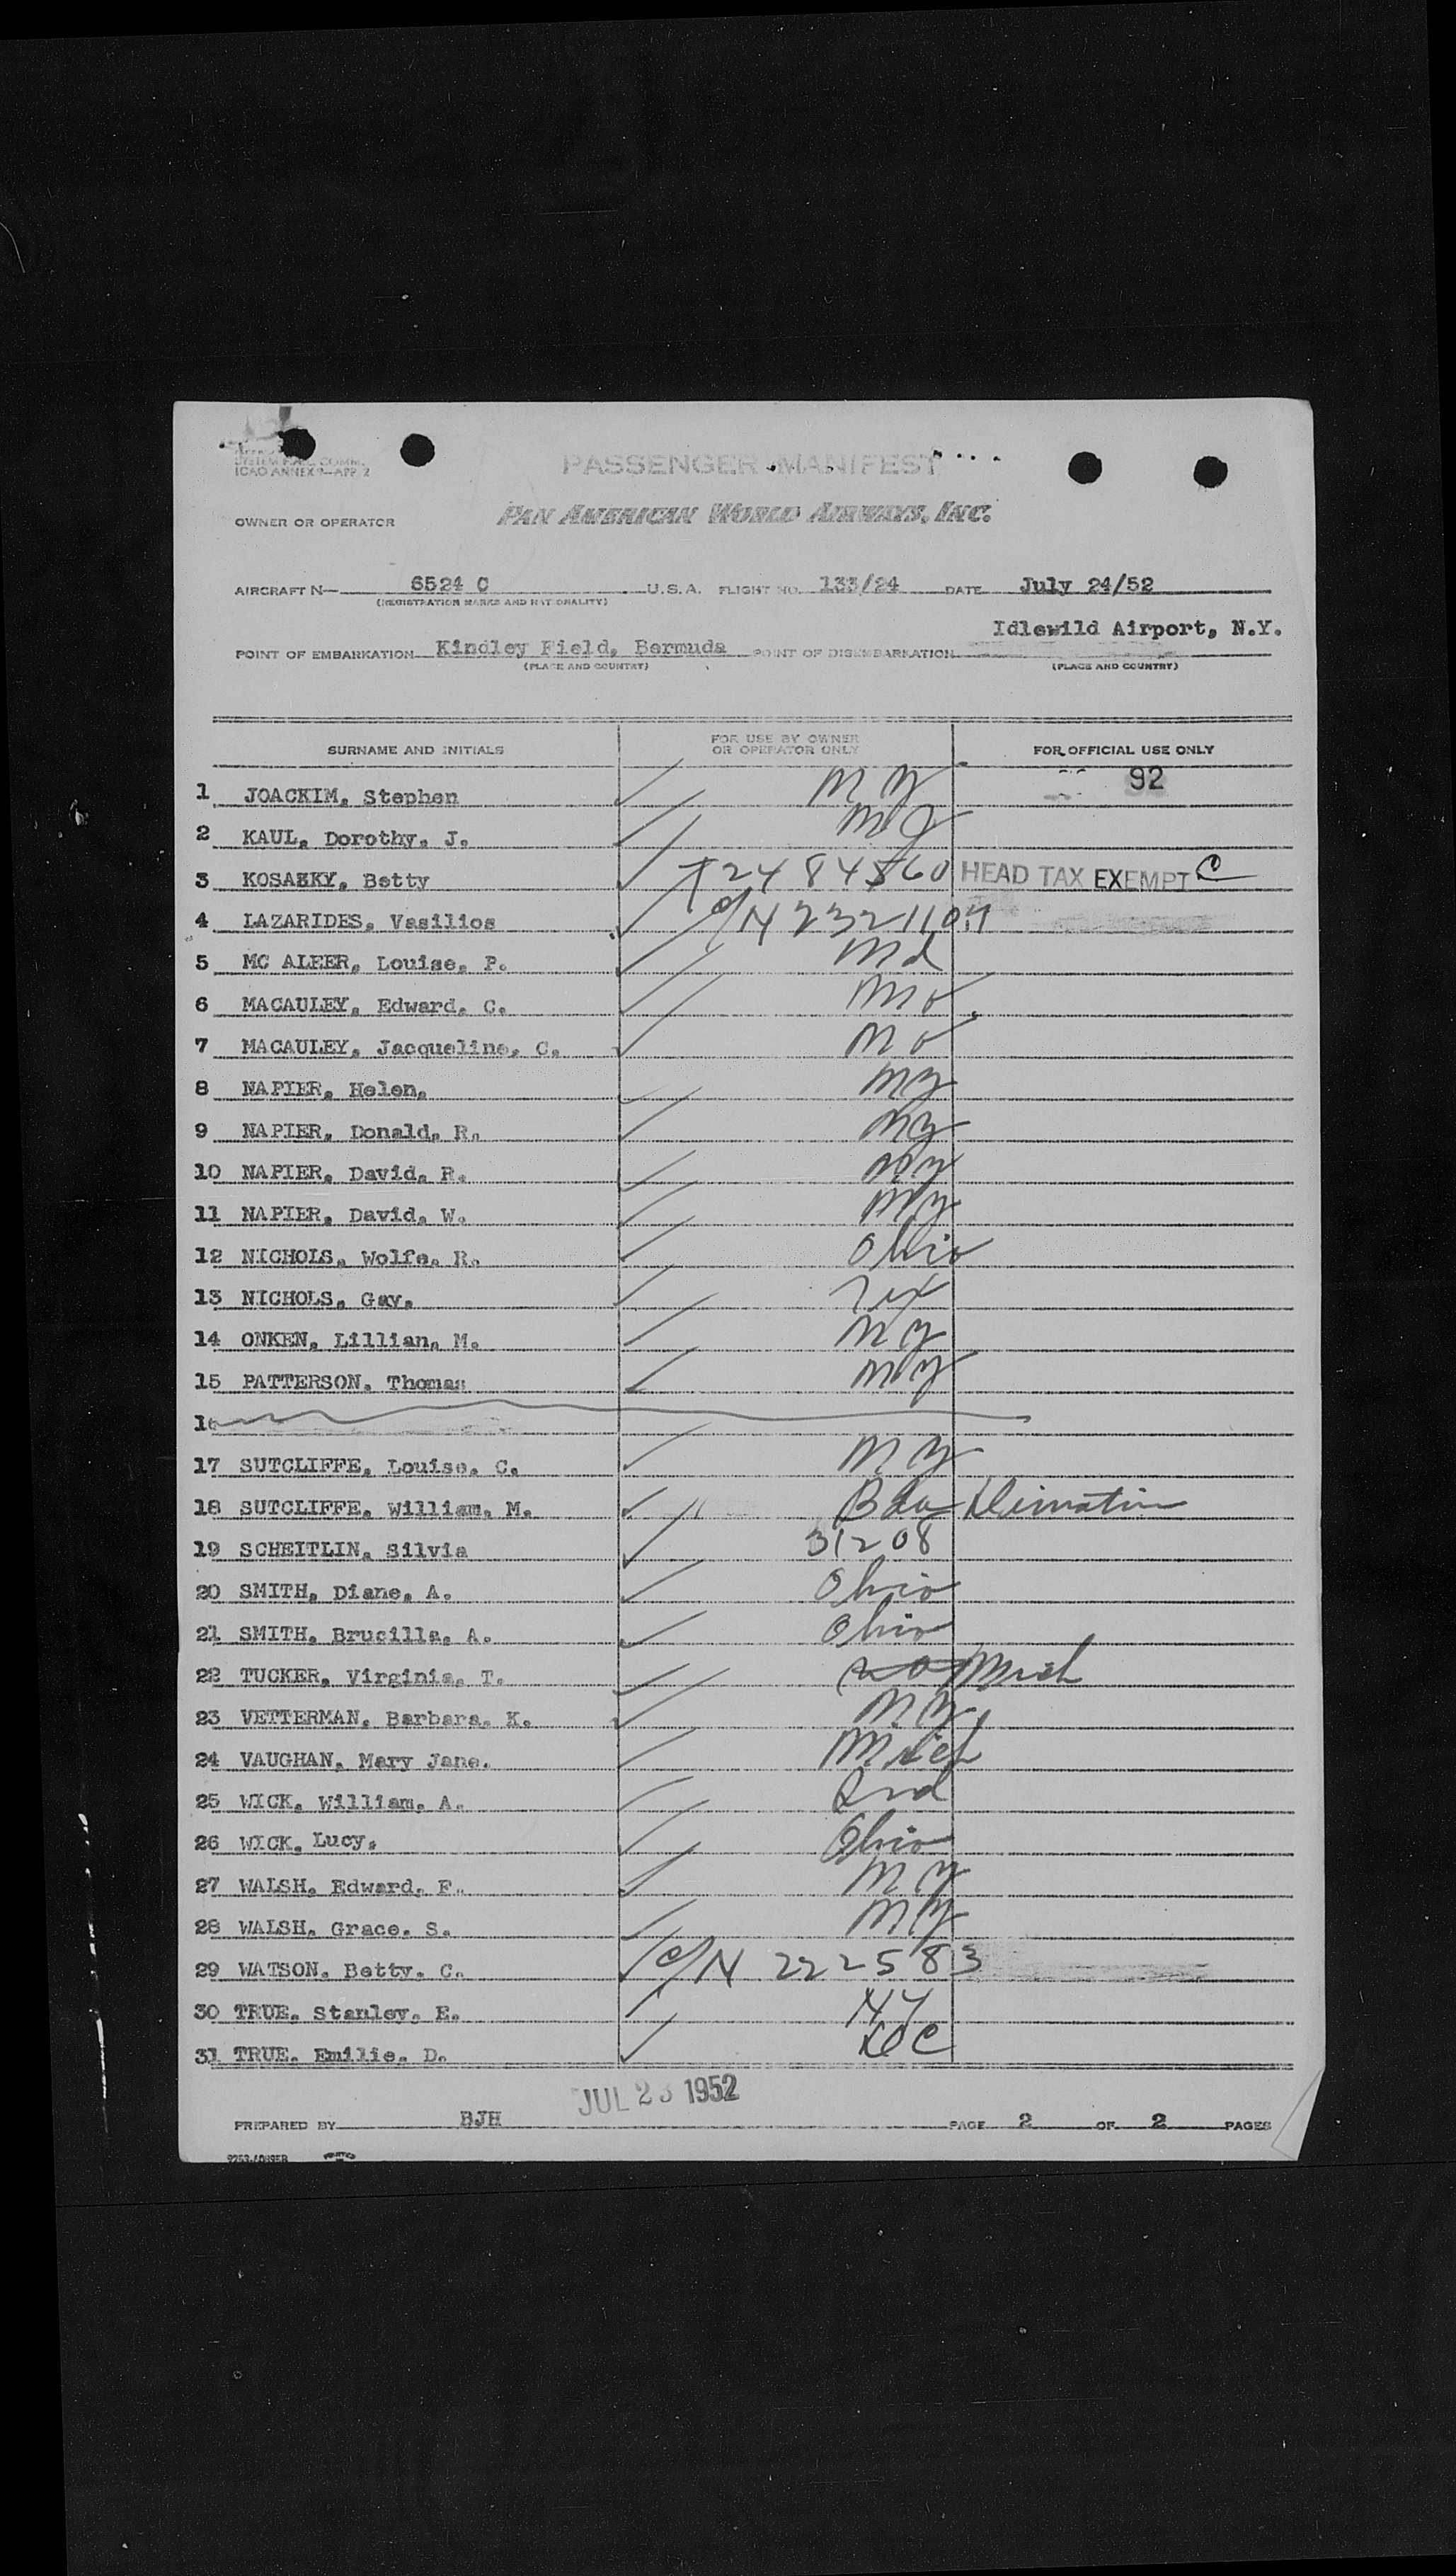 SYSTEM FORM COMM.
ICAO ANNEX 9—APP. 2
PASSENGER MANIFEST
OWNER OR OPERATOR PAN AMERICAN WORLD AIRWAYS, INC.
AIRCRAFT N— 6524 C U.S.A. FLIGHT NO. 133/24 DATE July 24/52
(REGISTRATION MARKS AND NATIONALITY)
Idlewild Airport, N.Y.
POINT OF EMBARKATION Kindley Field, Bermuda POINT OF DISEMBARKATION
(PLACE AND COUNTRY) (PLACE AND COUNTRY)
SURNAME AND INITIALS FOR USE BY OWNER OR OPERATOR ONLY FOR OFFICIAL USE ONLY
92
1 JOACKIM, Stephen NY
2 KAUL, Dorothy, J. NJ
3 KOSAZKY, Betty T2484560 HEAD TAX EXEMPT C
4 LAZARIDES, Vasilios c/N 2321107
5 MC ALEER, Louise, P. Md
6 MACAULEY, Edward, C. Mo
7 MACAULEY, Jacqueline, C. Mo
8 NAPIER, Helen, NY
9 NAPIER, Donald, R. NY
10 NAPIER, David, R. NY
11 NAPIER, David, W. NY
12 NICHOLS, Wolfe, R. Ohio
13 NICHOLS, Gay, Tex
14 ONKEN, Lillian, M. NY
15 PATTERSON, Thomas NY
16
17 SUTCLIFFE, Louise, C. NY
18 SUTCLIFFE, William, M. Bda
19 SCHEITLIN, Silvia 31208
20 SMITH, Diane, A. Ohio
21 SMITH, Brucilla, A. Ohio
22 TUCKER, Virginia, T. Mich
23 VETTERMAN, Barbara, K. NY
24 VAUGHAN, Mary Jane. Mich
25 WICK, William, A. Ind
26 WICK, Lucy, Ohio
27 WALSH, Edward, F. NY
28 WALSH, Grace, S. NY
29 WATSON, Betty, C. c/N 222583
30 TRUE, Stanley, E. NY
31 TRUE, Emilie, D. DC
JUL 23 1952
PREPARED BY BJH PAGE 2 OF 2 PAGES